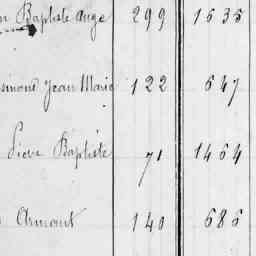 Baptiste Ange 299 1535
Jean Marie 122 647
Baptiste 71 1464
Armont 140 686